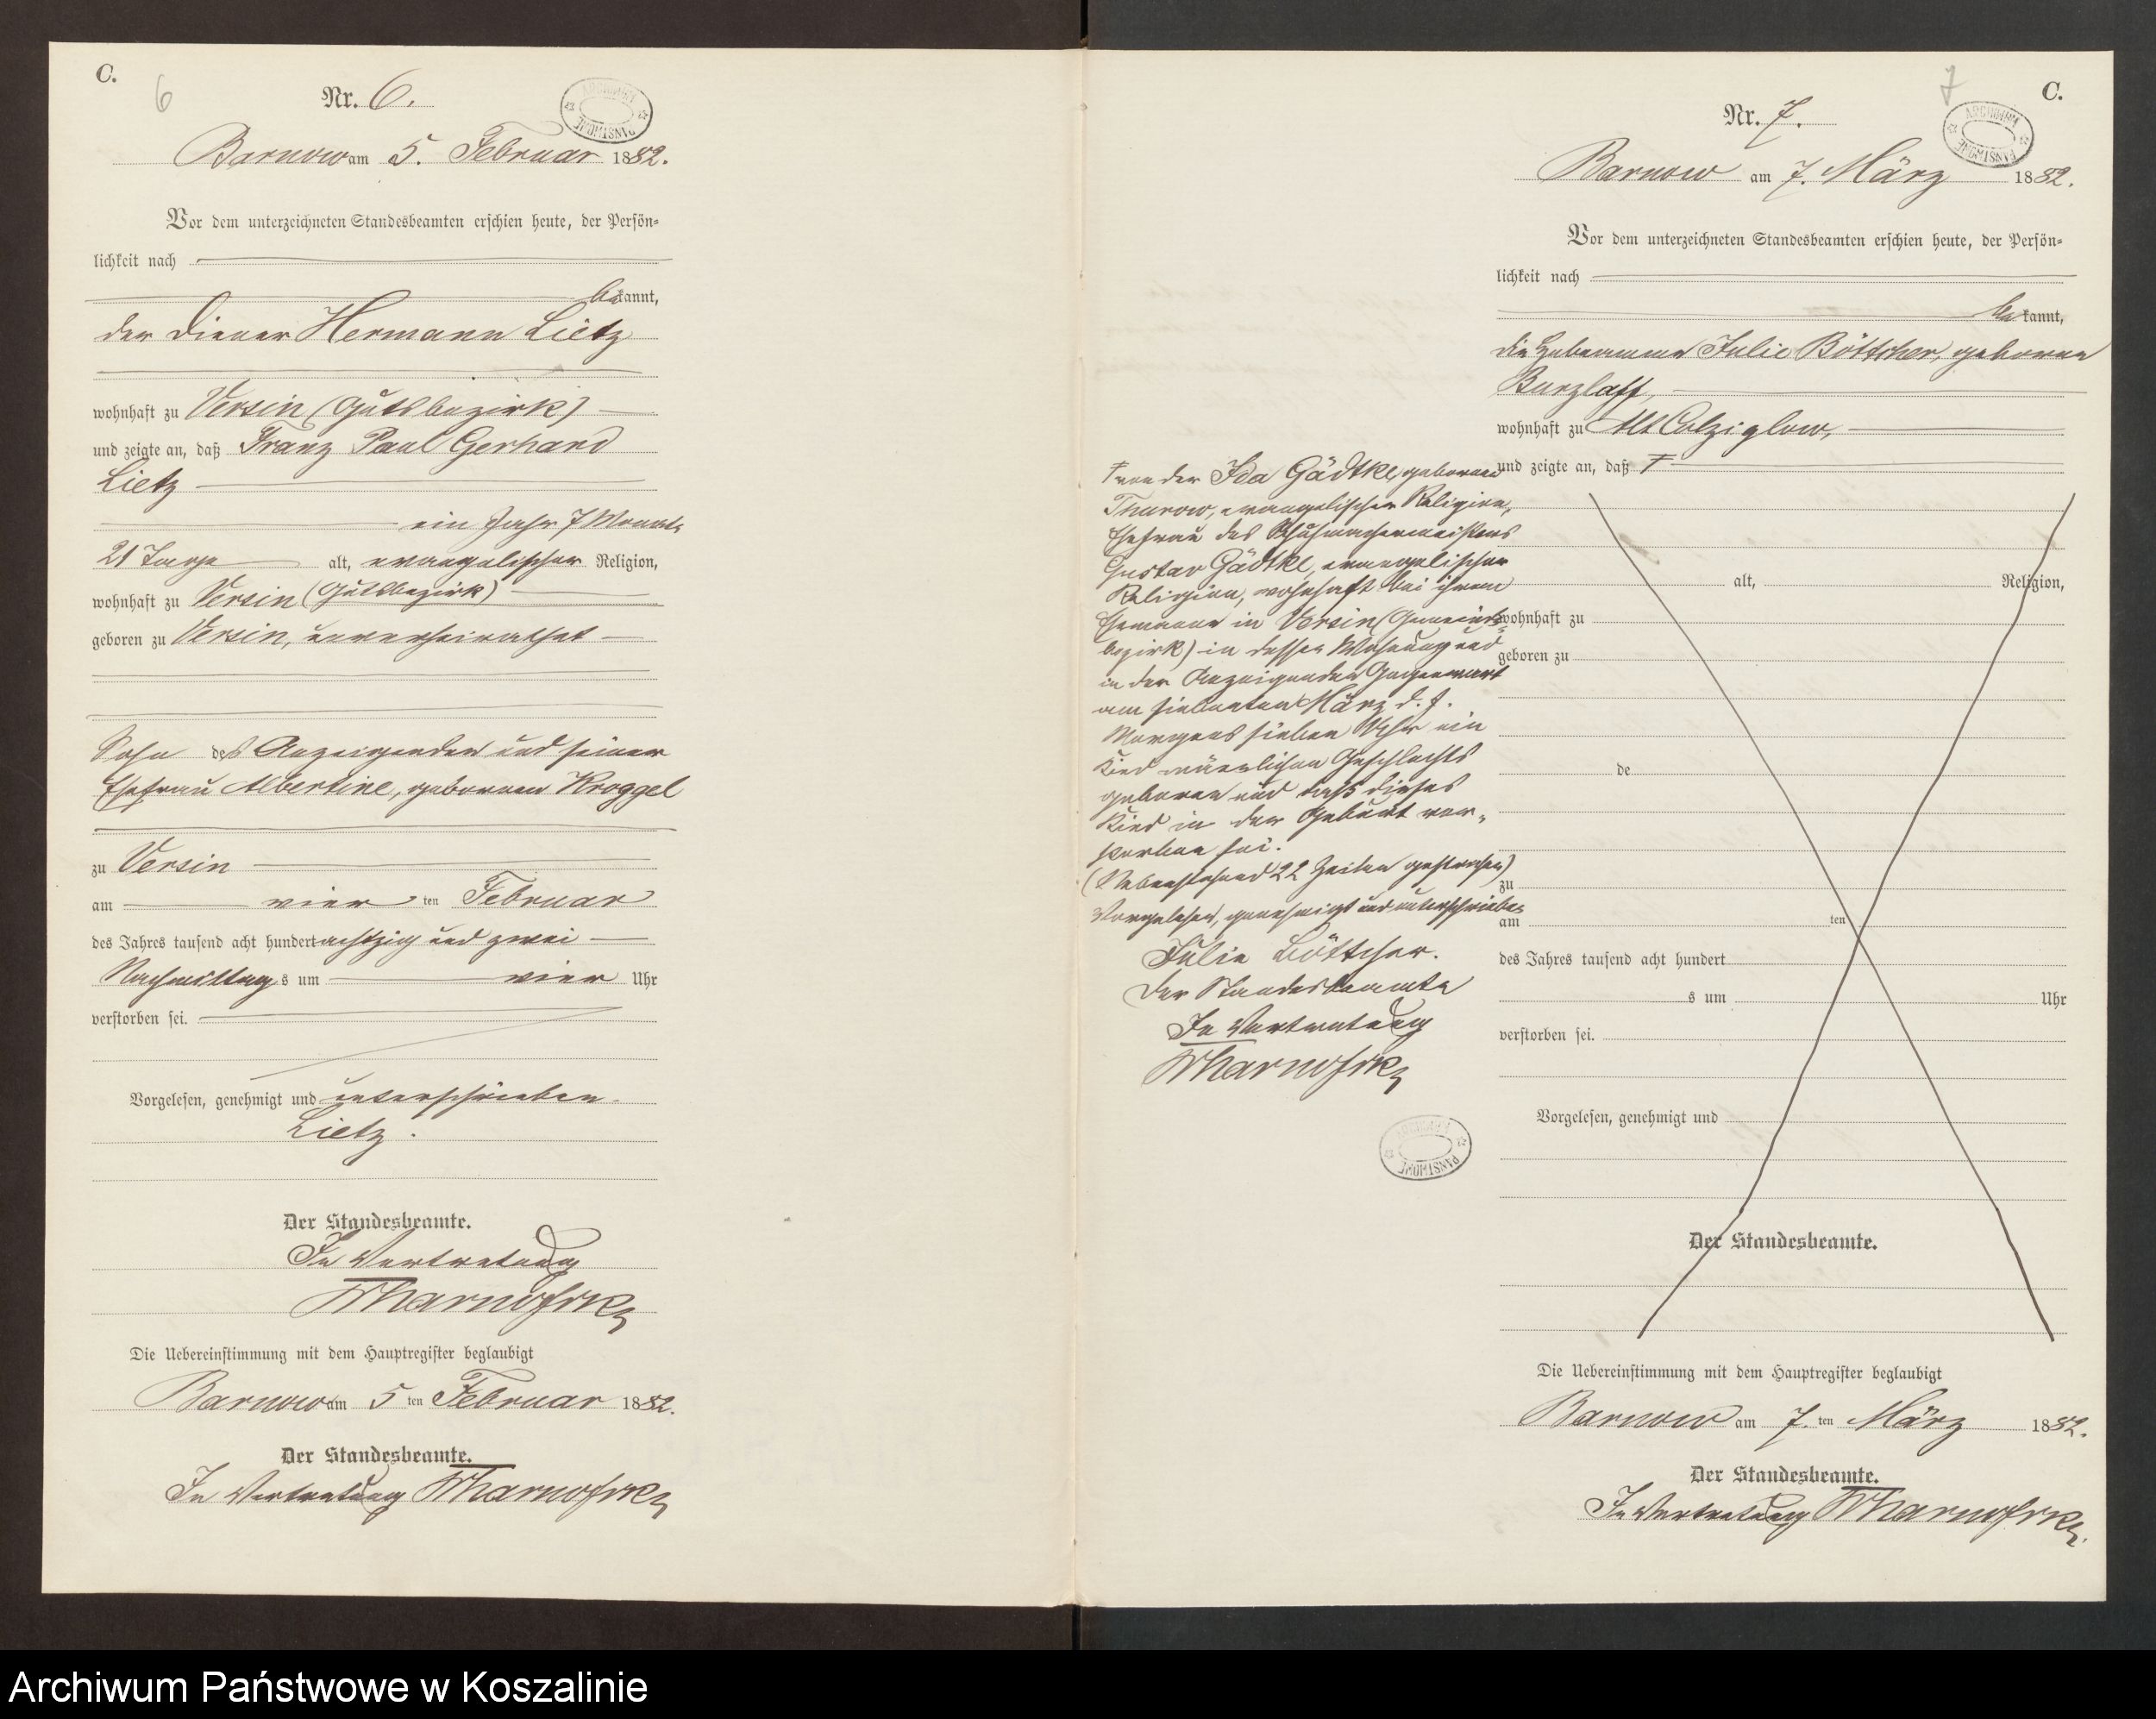 C.
6
Nr. 6.
ARCHIWUM PAŃSTWOWE
Barnow am 5. Februar 1882.
Vor dem unterzeichneten Standesbeamten erschien heute, der Persön-
lichkeit nach
bekannt,
der Diener Hermann Lietz
wohnhaft zu Versin (Gutsbezirk)
und zeigte an, daß Franz Paul Gerhard
Lietz
ein Jahr 7 Monate
21 Tage alt, evangelischer Religion,
wohnhaft zu Versin (Gutsbezirk)
geboren zu Versin, unverheirathet
Sohn des Anzeigenden und seiner
Ehefrau Albertine, geborenen Kroggel
zu Versin
am vierten Februar
des Jahres tausend acht hundert achtzig und zwei
Nachmittags um vier Uhr
verstorben sei.
Vorgelesen, genehmigt und unterschrieben.
Lietz.
Der Standesbeamte.
In Vertretung
Die Uebereinstimmung mit dem Hauptregister beglaubigt
Barnow am 5ten Februar 1882.
Der Standesbeamte.
In Vertretung
7
C.
Nr. 7.
ARCHIWUM PAŃSTWOWE
Barnow am 7. März 1882.
Vor dem unterzeichneten Standesbeamten erschien heute, der Persön-
lichkeit nach
bekannt,
die Hebeamme Julie Böttcher, geborene
Burzlaff,
wohnhaft zu Alt Colziglow,
und zeigte an, daß Ŧ
Ŧ von der Ida Gädtke, geborenen
Thurow, evangelischer Religion,
Ehefrau des Schuhmachermeisters
Gustav Gädtke, evangelischer
Religion, wohnhaft bei ihrem
Ehemanne in Versin (Gemeinde-
bezirk) in dessen Wohnung und
in der Anzeigenden Gegenwart
am siebenten März d. J.
Morgens sieben Uhr ein
Kind männlichen Geschlechts
geboren und daß dieses
Kind in der Geburt ver-
storben sei.
(Nebenstehend 22 Zeilen gestrichen)
Vorgelesen, genehmigt und unterschrieben
Julie Böttcher.
Der Standesbeamte
In Vertretung
ARCHIWUM PAŃSTWOWE
alt, Religion,
wohnhaft zu
geboren zu
de
zu
am ten
des Jahres tausend acht hundert
s um Uhr
verstorben sei.
Vorgelesen, genehmigt und
Der Standesbeamte.
Die Uebereinstimmung mit dem Hauptregister beglaubigt
Barnow am 7. ten März 1882.
Der Standesbeamte.
In Vertretung
Archiwum Państwowe w Koszalinie